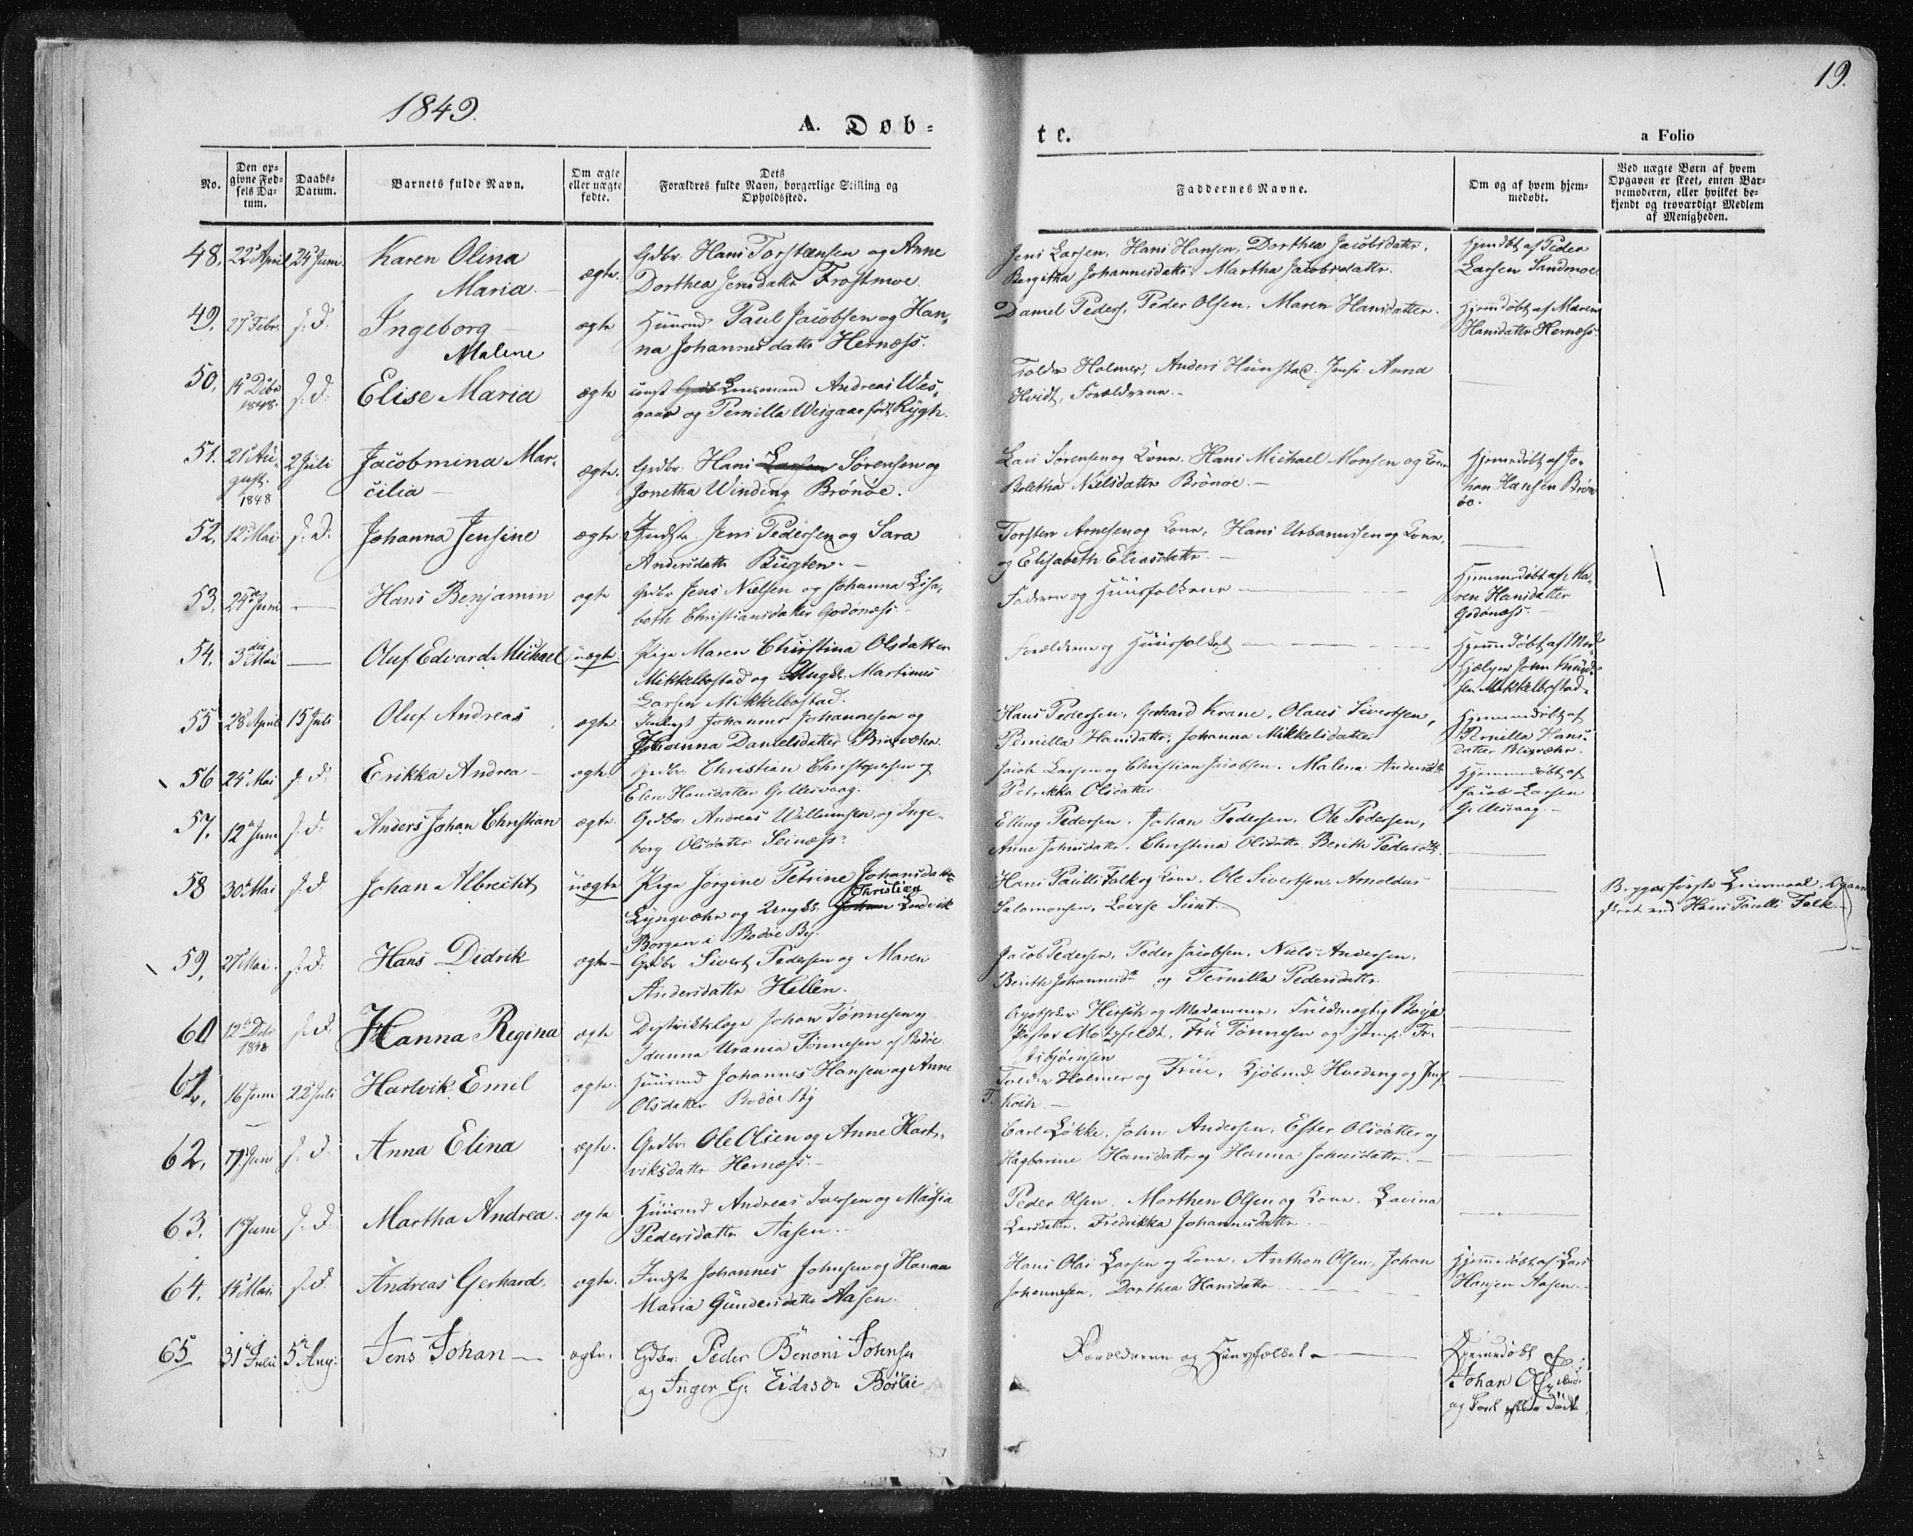 19.
1849.
A. Døb-
te.
a Folio
No.
Den op-
givne Fød-
sels Da-
tum.
Daabs-
Datum.
Barnets fulde Navn.
Om ægte
eller uægte
fødte.
Dets
Forældres fulde Navn, borgerlige Stilling og
Opholdssted.
Faddernes Navne.
Om og af hvem hjem-
medøbt.
Ved uægte Børn af hvem
Opgaven er skeet, enten Bar-
nemoderen, eller hvilket be-
kjendt og troværdigt Medlem
af Menigheden.
48. 22 April 24 Juni Karen Olina ægte. Gdbr. Hans Torstensen og Anne Jens Larsen, Hans Hansen, Dorthea Jacobsdatter, Hjemdøbt af Peder
Maria. Dorthea Jensdatter Frostmoe. Martha Jacobsdatter. Larsen Sandmoe
49. 27 Febr. s. d. Ingeborg ægte Huusmd. Paul Jacobsen og Han- Daniel Peders., Peder Olsen, Maren Hansdatter. Hjemmedøbt af Maren
Malene na Johannesdatter Hernæss. Hansdatter Hernæss.
50. 14 Debr s. d. Elise Maria ægte Lensmand Andreas Wes- Holmer, Anders Hunstad, Anna
1848. gaar og Pernilla Weigaar født Rygh. Hvidt, Forældrene.
51. 21 Au- 2 Juli Jacobmina Mar- ægte. Gdbr. Hans Larsen Sørensen og Lars Sørensen og Kone, Hans Michael Monsen og Kone Hjemmedøbt af Jo-
gust. cilia Jonetha Winding Brønøe. Nielsdatter Brønøe. han Hansen Brøn
1848 øe.
52. 12 Mai s. d. Johanna Jensine ægte Indst. Jens Pedersen og Sara Torsten Arnesen og Kone, Hans Urbanussen og Kone,
Andersdatter Bugten. og Elisabeth Eliasdatter
53. 24 Juni Hans Benjamin ægte Gdbr. Jens Nielsen og Johanna Lisa- Faderen og Huusfolkene Hjemmedøbt af Ka-
beth Christiansdatter Godønæss. ren Hansdatter
Godønæss.
54. 3die Mai Oluf Edvard Michael uægte Pige Maren Christina Olsdatter Forældrene og Huusfolket Hjemmedøbt af
Mikkelbostad og Ungk. Martinus hjælper John Knud-
Larsen Mikkelbostad. sen Mikkelbostad.
55 28 April 15 Juli Oluf Andreas ægte Johannes Johannesen og Hans Pedersen, Gerhard Krane, Olaus Sivertsen, Hjemmedøbt af
Johanna Danielsdatter Pernilla Hansdatter, Johanna Mikkelsdatter Pernilla Hans-
datter
56 24 Mai s. d. Erikka Andrea ægte Gdbr. Christian Christophersen og Jacob Larsen og Christian Jacobsen, Malena Andersd. Hjemmedøbt af
Elen Hansdatter Gillesvaag. Petrikka Olsdatter Jacob Larsen
Gillesvaag.
57. 12 Juni s. d. Anders Johan Christian ægte Gdbr. Andreas Willumsen og Inge- Elling Pedersen, Johan Pedersen, Ole Pedersen,
borg Olsdatter Seinæss. Anne Johnsdatter, Christina Olsdatter, Berith Pedersd.
58 30 Mai s. d. Johan Albrecht uægte Pige Jørgine Petrine Johansdatter Hans Paulli Falk og Kone, Ole Sivertsen, Arnoldus Begges første Leiermaal
Christian
Lyngvæhr og Ungk. Johan Ludvik Salomonsen, Lovise Hans Paulli Falk
Borgen i Bodøe By.
59. 27 Mai s. d. Hans Didrik ægte Gdbr Sivert Pedersen og Maren Jacob Pedersen, Peder Jacobsen, Niels Andersen,
Andersdatter Hellen. Berith Johannesd. og Pernilla Pedersdatter
60 12 Debr s. d. Hanna Regina ægte Distriktslæge Johan Tønnesen og Apotheker Hirsch og Madamme, Fuldmægtig Boye
1848 Idunna Urania Tønnesen af Bodøe Pastor Motzfeldt, Fru Tønnesen og
61. 16 Juni 22 Juli Hartvik Emil ægte. Huusmd Johannes Hansen og Anne Holmer og Frue, Kjøbmd. Hveding og
Olsdatter Bodøe By Koch.
62. 7 Juni s. d. Anna Elina ægte. Gdbr. Ole Olsen og Anne Hart- Carl Løkke, John Andersen, Ester Olsdatter og
viksdatter Hernæss. Hagbarine Hansdatter og Hanna Johnsdatter.
63. 1 Juni s. d. Martha Andrea. ægte Huusmd Andreas Iversen og Peder Olsen, Morthen Olsen og Kone, Lavina
Pedersdatter Aasen. Larsdatter, Fredrikka Johannesdatter
64. 14 Mai s. d. Andreas Gerhard. ægte. Indst. Johannes Johnsen og Hanna Hans Olai Larsen og Kone, Anthon Olsen, Johan Hjemmedøbt af Lars
Maria Gundersdatter Aasen Johannesen, Dorthea Hansdatter Hansen Aasen.
65 31 Juli 5 Aug. Jens Johan ægte. Gdbr. Peder Benoni Johnsen Forældrene og Huusfolket Hjemmedøbt af
og Inger G. Eidisd. Johan